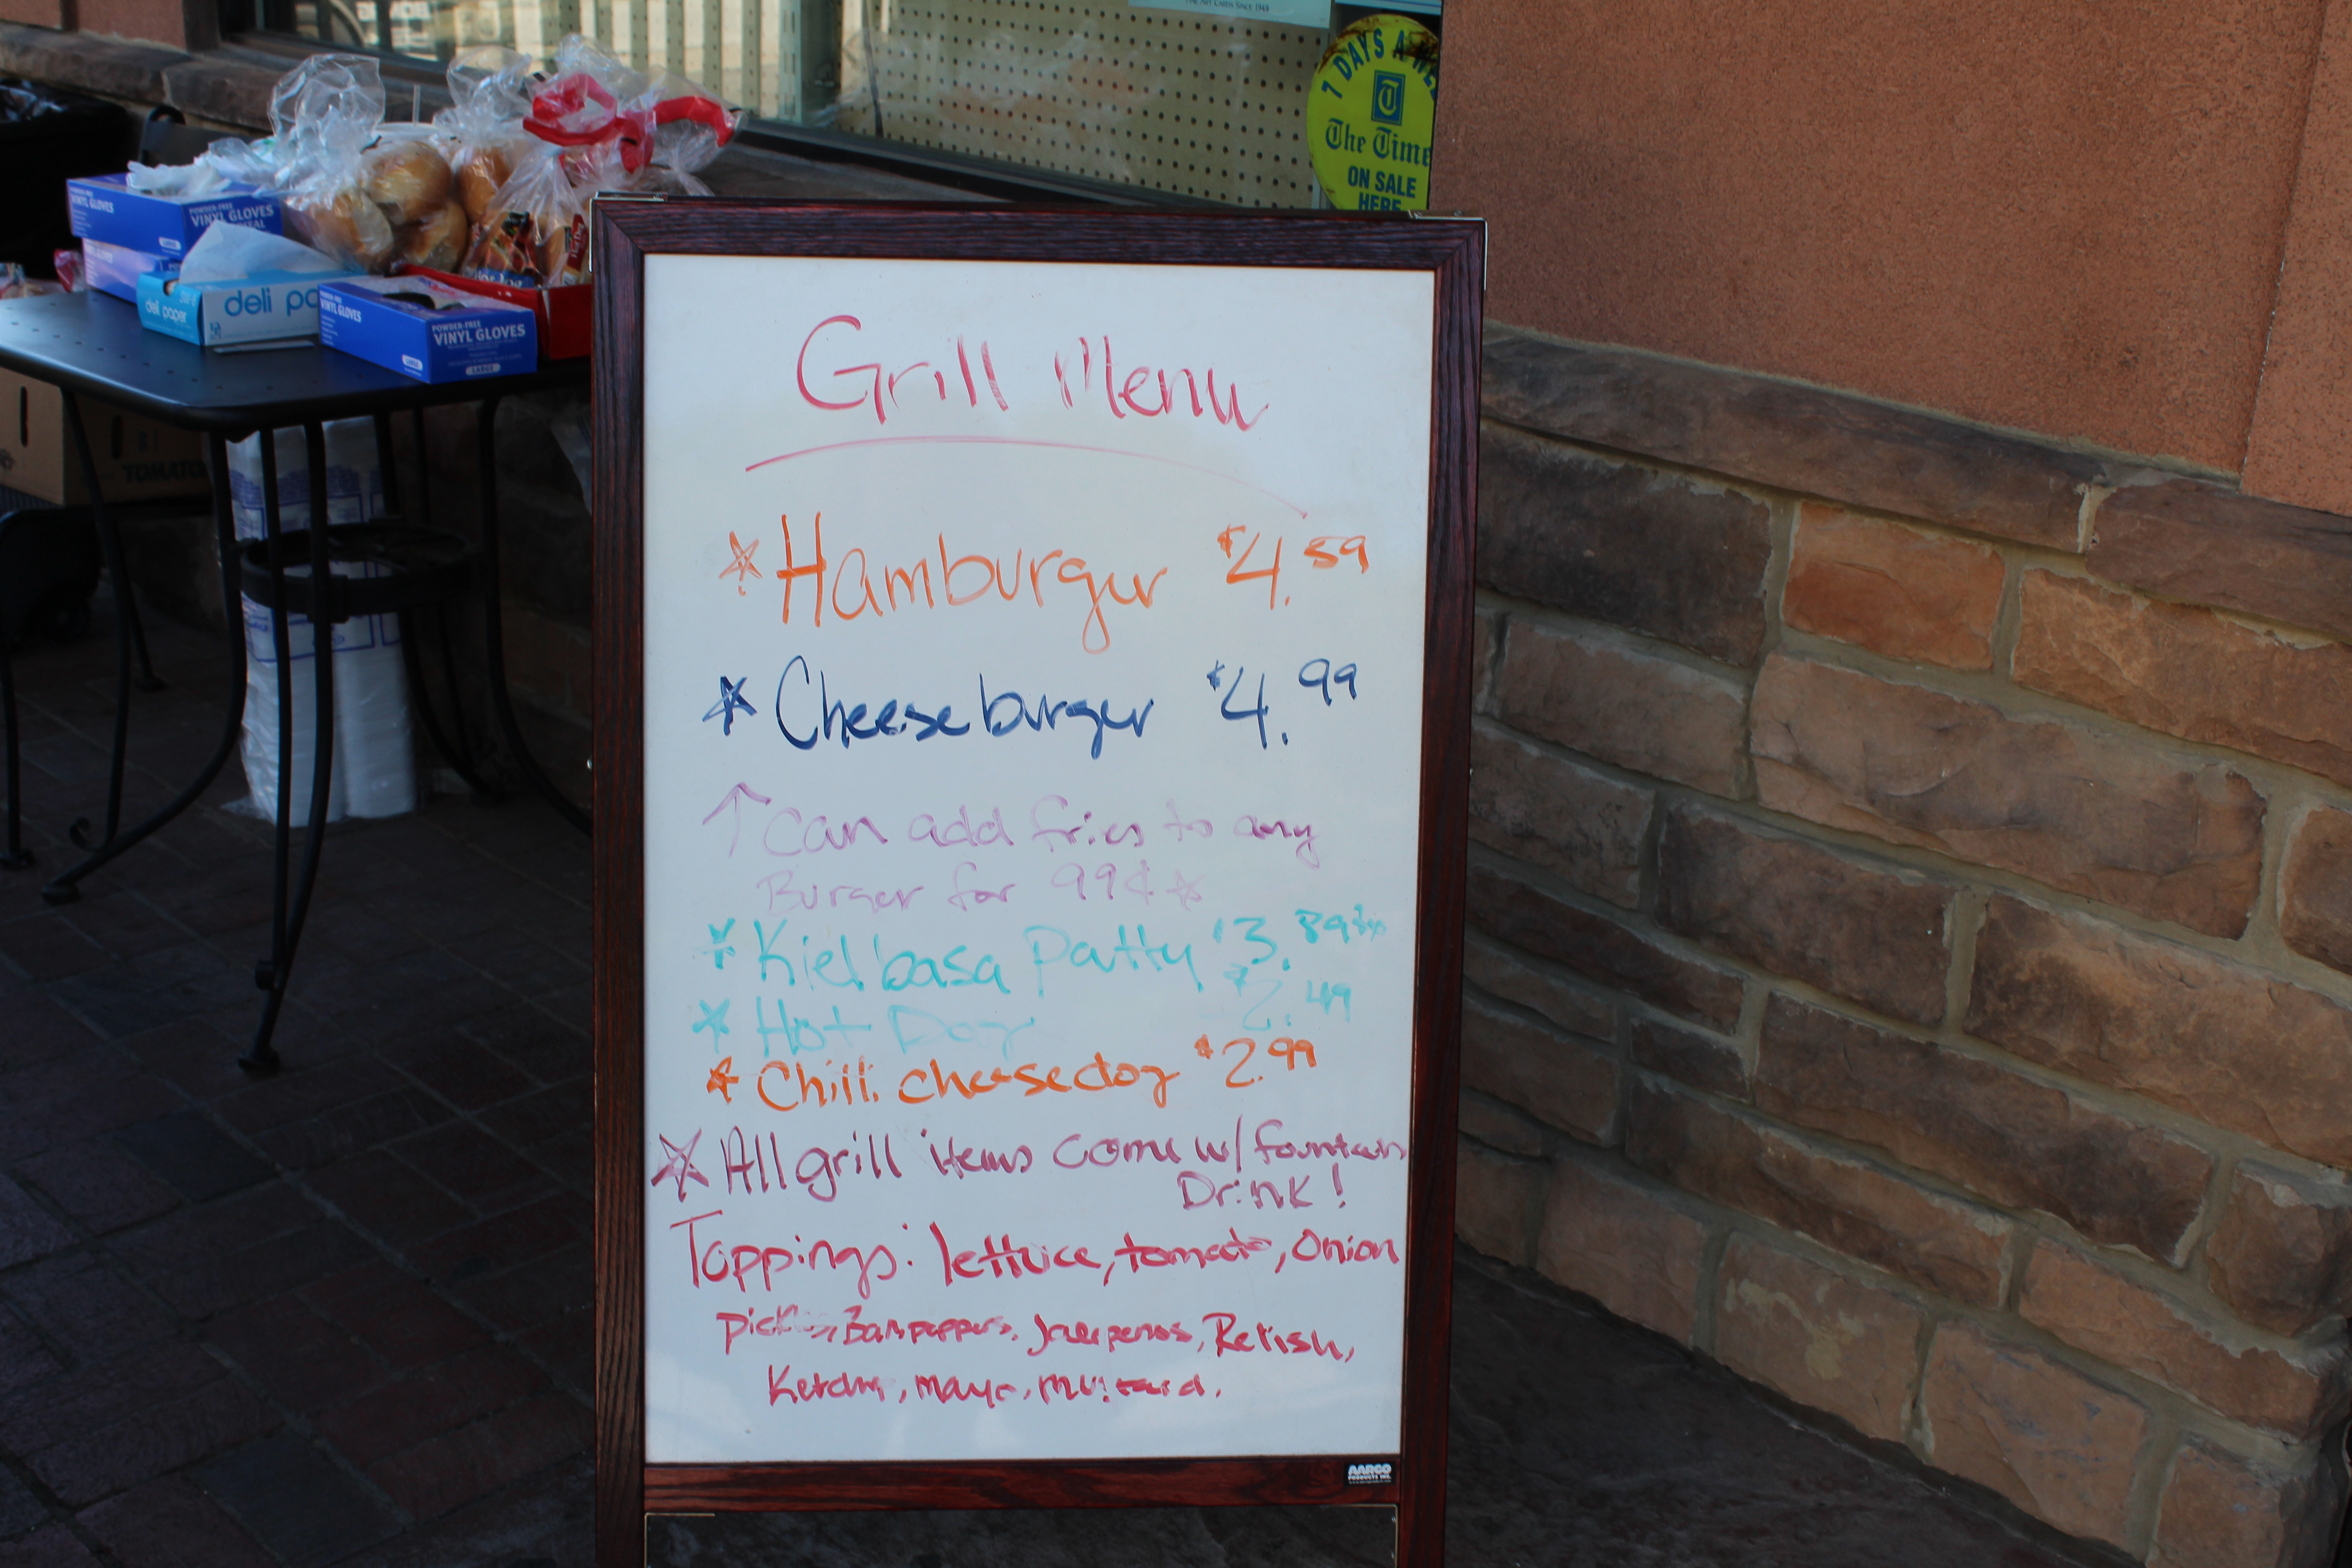 Grill Menu
Hamburger $4.59
Cheeseburger $4.99
↑ Can add fries to any
Burger for 99¢
Kielbasa Patty $3.89
Hot Dog $2.49
Chili cheesedog $2.99
All grill items come w/ fountain
Drink!
Toppings: lettuce, tomato, Onion
Pickles, Banpeppers, Relish,
Ketchup, mayo, mustard.
AARCO
PRODUCTS INC.
7 DAYS A WE
The Time
ON SALE
HERE
POWDER-FREE
VINYL GLOVES
deli paper
deli pa
POWDER-FREE
VINYL GLOVES
LARGE
POWDER-FREE
VINYL GLOVES
VINYL GLOVES
LARGE
TOMATO